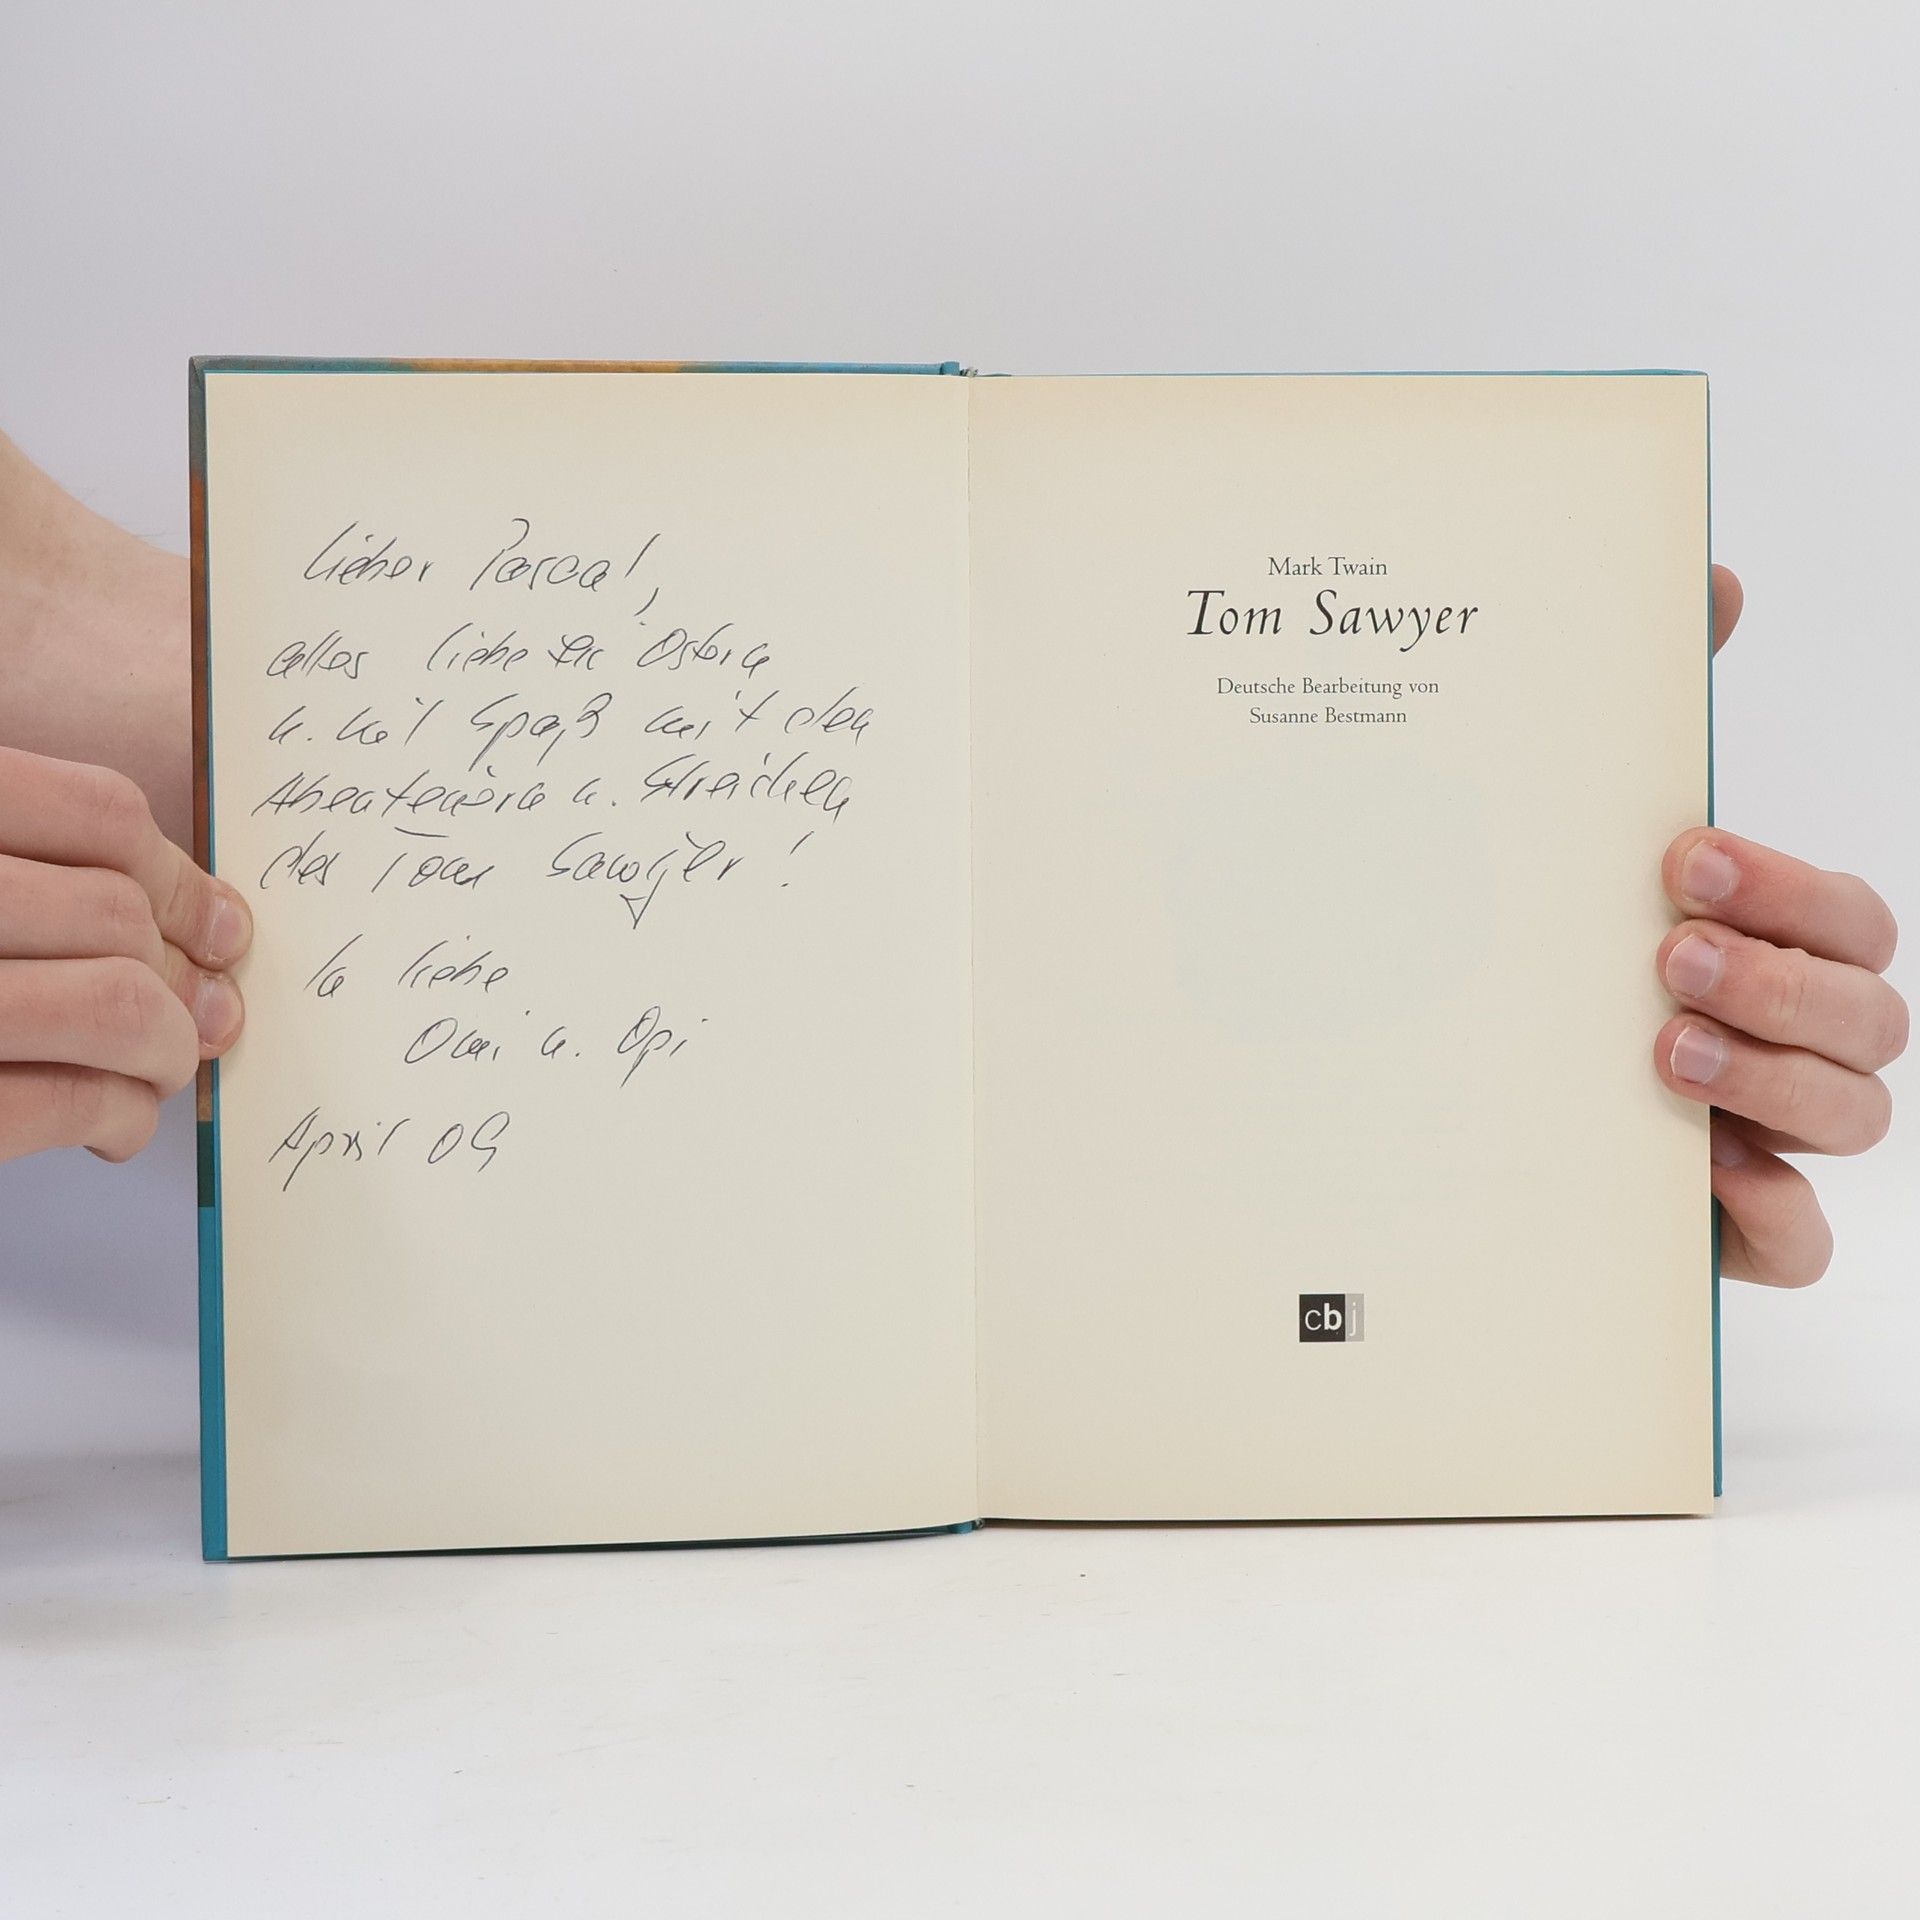 Lieber Pascal,
alles liebe zu Ostern
u. viel Spaß mit den
Abenteuern u. Streichen
des Tom Sawyer!
In Liebe
Omi u. Opi
April 09
Mark Twain
Tom Sawyer
Deutsche Bearbeitung von
Susanne Bestmann
cbj